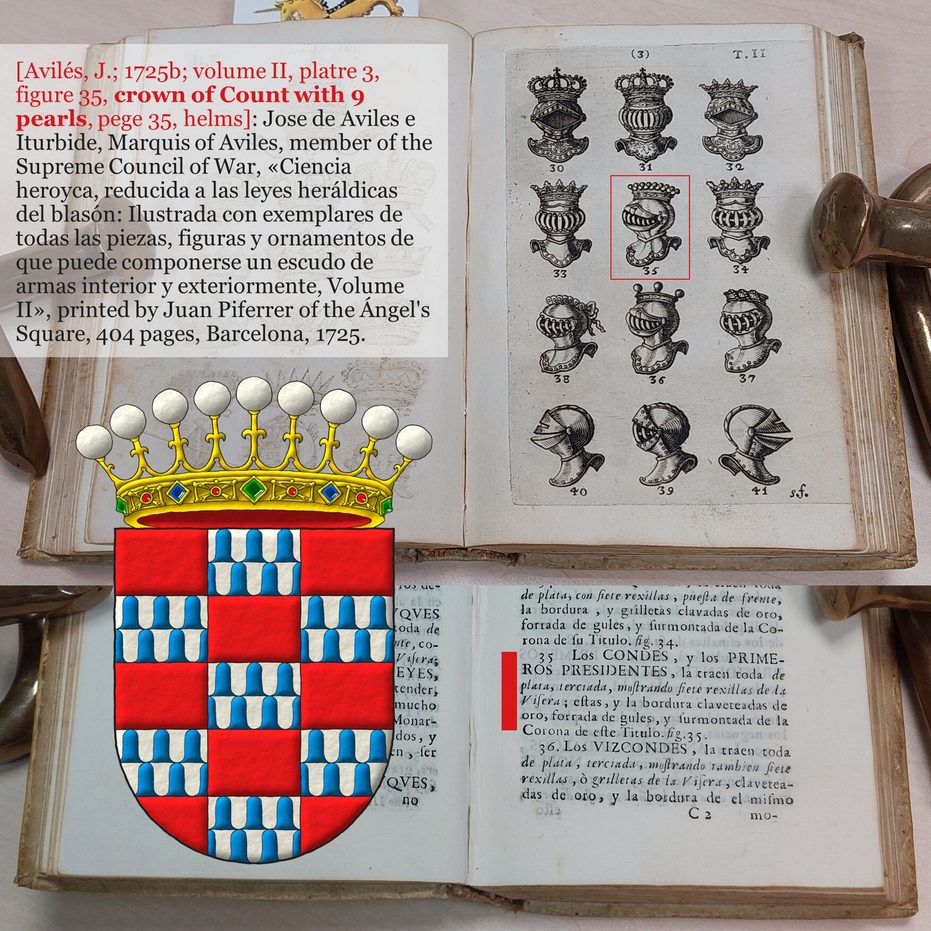 [Avilés, J.; 1725b; volume II, platre 3,
figure 35, crown of Count with 9
pearls, pege 35, helms]: Jose de Aviles e
Iturbide, Marquis of Aviles, member of the
Supreme Council of War, «Ciencia
heroyca, reducida a las leyes heráldicas
del blasón: Ilustrada con exemplares de
todas las piezas, figuras y ornamentos de
que puede componerse un escudo de
armas interior y exteriormente, Volume
II», printed by Juan Piferrer of the Ángel's
Square, 404 pages, Barcelona, 1725.
(3) T. II
30 31 32
33 35 34
38 36 37
40 39 41 s.f.
YQVES
toda de
co-
Visera;
EYES,
tender;
mucho
Monar-
dos, y
en, ser
QVES,
no
de plata, con siete rexillas, puesta de frente,
la bordura, y grilletas clavadas de oro,
forrada de gules, y surmontada de la Co-
rona de su Titulo. fig. 34.
35 Los CONDES, y los PRIME-
ROS PRESIDENTES, la traen toda de
plata, terciada, mostrando siete rexillas de la
Visera; estas, y la bordura claveteadas de
oro, forrada de gules, y surmontada de la
Corona de este Titulo. fig. 35.
36. Los VIZCONDES, la traen toda
de plata, terciada, mostrando tambien siete
rexillas, ò grilletas de la Visera, clavetea-
das de oro, y la bordura de el mismo
C 2 mo-